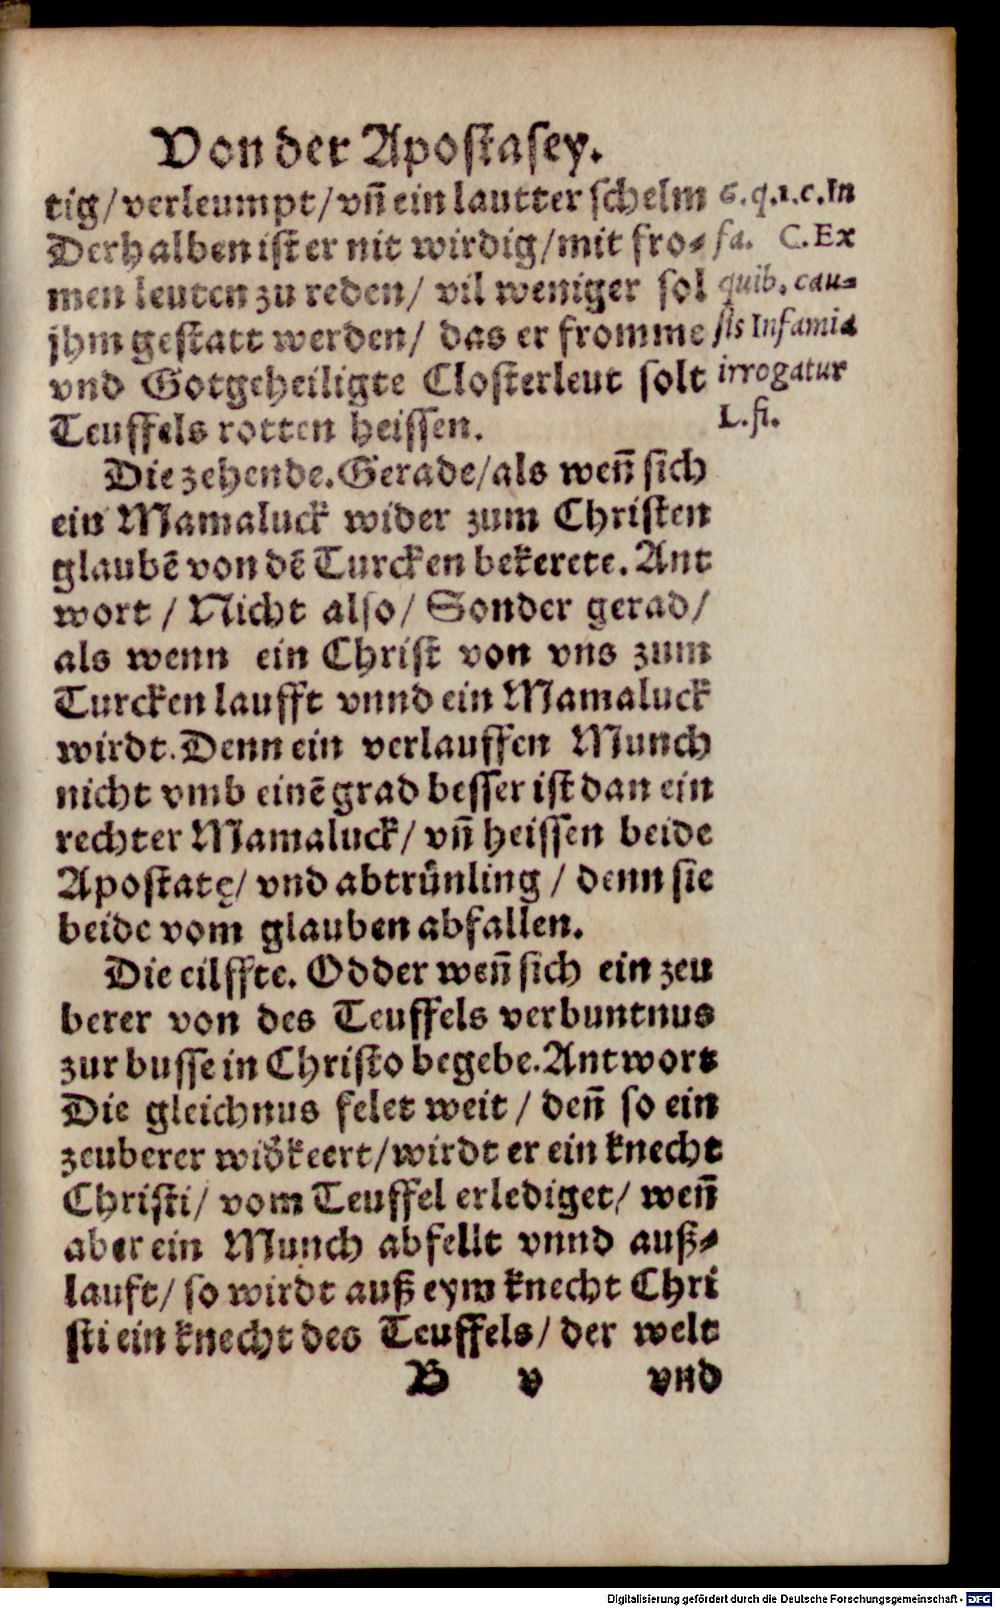 Von der Apostasey.
tig/ verleumpt/ vñ ein lautter schelm
Derhalben ist er nit wirdig/ mit fro⸗
men leuten zu reden/ vil weniger sol
jhm gestatt werden/ das er fromme
vnd Gotgeheiligte Closterleut solt
Teuffels rotten heissen.
6.q.1.c.In
fa. C.Ex
quib. cau⸗
sis Infamia
irrogatur
L.fi.
Die zehende. Gerade/ als weñ sich
ein Mamaluck wider zum Christen
glaubẽ von dẽ Turcken bekerete. Ant
wort / Nicht also/ Sonder gerad/
als wenn ein Christ von vns zum
Turcken laufft vnnd ein Mamaluck
wirdt. Denn ein verlauffen Munch
nicht vmb einẽ grad besser ist dan ein
rechter Mamaluck/ vñ heissen beide
Apostatę/ vnd abtrůnling / denn sie
beide vom glauben abfallen.
Die eilffte. Odder weñ sich ein zeu
berer von des Teuffels verbuntnus
zur busse in Christo begebe. Antwort
Die gleichnus felet weit / deñ so ein
zeuberer widkeert/ wirdt er ein knecht
Christi/ vom Teuffel erlediget/ weñ
aber ein Munch abfellt vnnd auß⸗
lauft/ so wirdt auß eym knecht Chri
sti ein knecht des Teuffels/ der welt
B v vnd
Digitalisierung gefördert durch die Deutsche Forschungsgemeinschaft - DFG